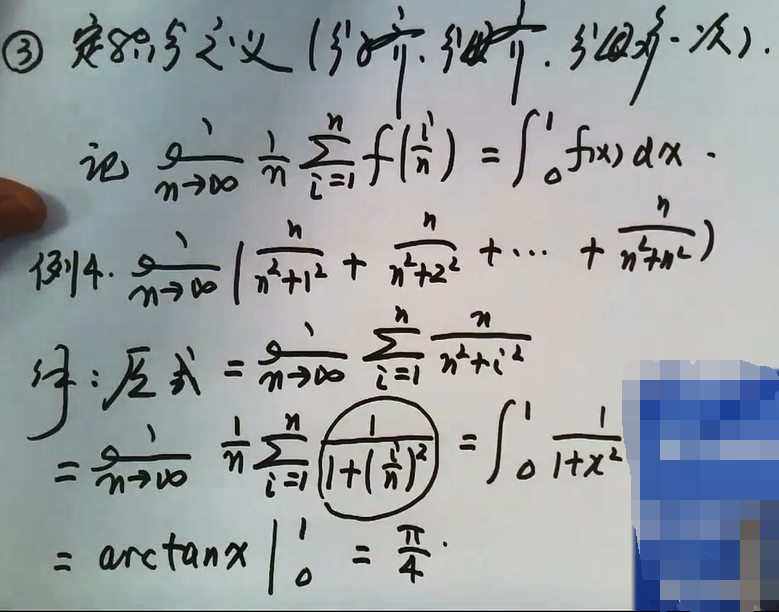 ③ 定积分之义 (分子齐. 分母齐. 分母多一次).
记 lim n→∞ 1/n ∑ i=1 n f(i/n) = ∫₀¹ f(x)dx.
例4. lim n→∞ (n/(n²+1²) + n/(n²+2²) + ⋯ + n/(n²+n²))
解: 原式 = lim n→∞ ∑ i=1 n n/(n²+i²)
= lim n→∞ 1/n ∑ i=1 n 1/(1+(i/n)²) = ∫₀¹ 1/(1+x²)
= arctanx |₀¹ = π/4.